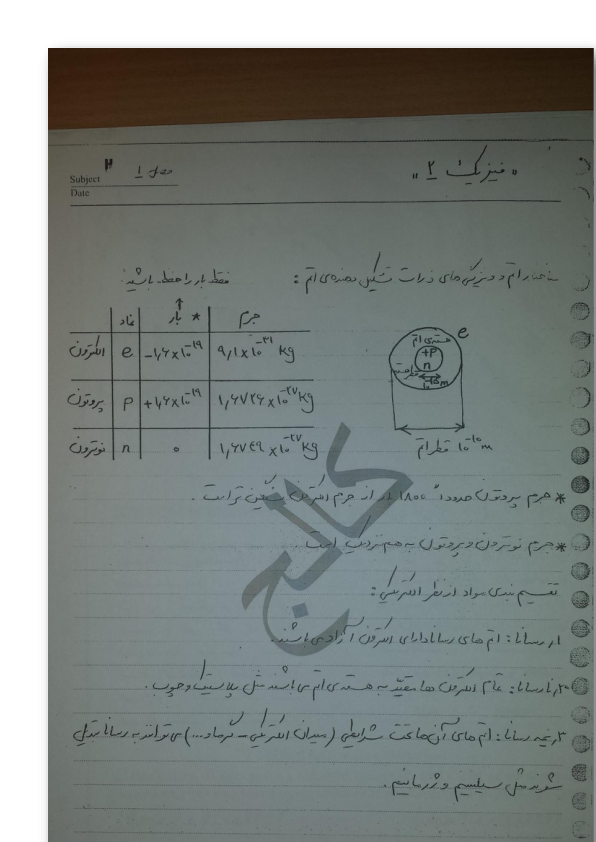 Subject ۲ فصل ۱
Date
" فیزیک ۲ "
ساختار اتم و ویژگی‌های ذرات تشکیل دهنده‌ی اتم :
فقط بار را حفظ باشید.
نماد | بار * | جرم
الکترون | e | -۱,۶×۱۰^-۱۹ | ۹,۱×۱۰^-۳۱ kg
پروتون | p | +۱,۶×۱۰^-۱۹ | ۱,۶۷۲۶×۱۰^-۲۷ kg
نوترون | n | ۰ | ۱,۶۷۴۹×۱۰^-۲۷ kg
e
هسته‌ی اتم
+p
n
قطر هسته
۱۰^-۱۵ m
قطر اتم ۱۰^-۱۰ m
* جرم پروتون حدوداً ۱۸۰۰ بار از جرم الکترون سنگین تر است .
* جرم نوترون و پروتون به هم نزدیک است .
تقسیم بندی مواد از نظر الکتریکی :
۱. رسانا : اتم های رسانا دارای الکترون آزاد می باشند.
۲. نارسانا : تمام الکترون ها مقید به هسته‌ی اتم می باشند مثل پلاستیک و چوب .
۳. نیمه رسانا : اتم های آن ها تحت شرایطی (میدان الکتریکی - گرما و ...) می توانند به رسانا تبدیل
شوند مثل سیلیسیم و ژرمانیم .
کالج